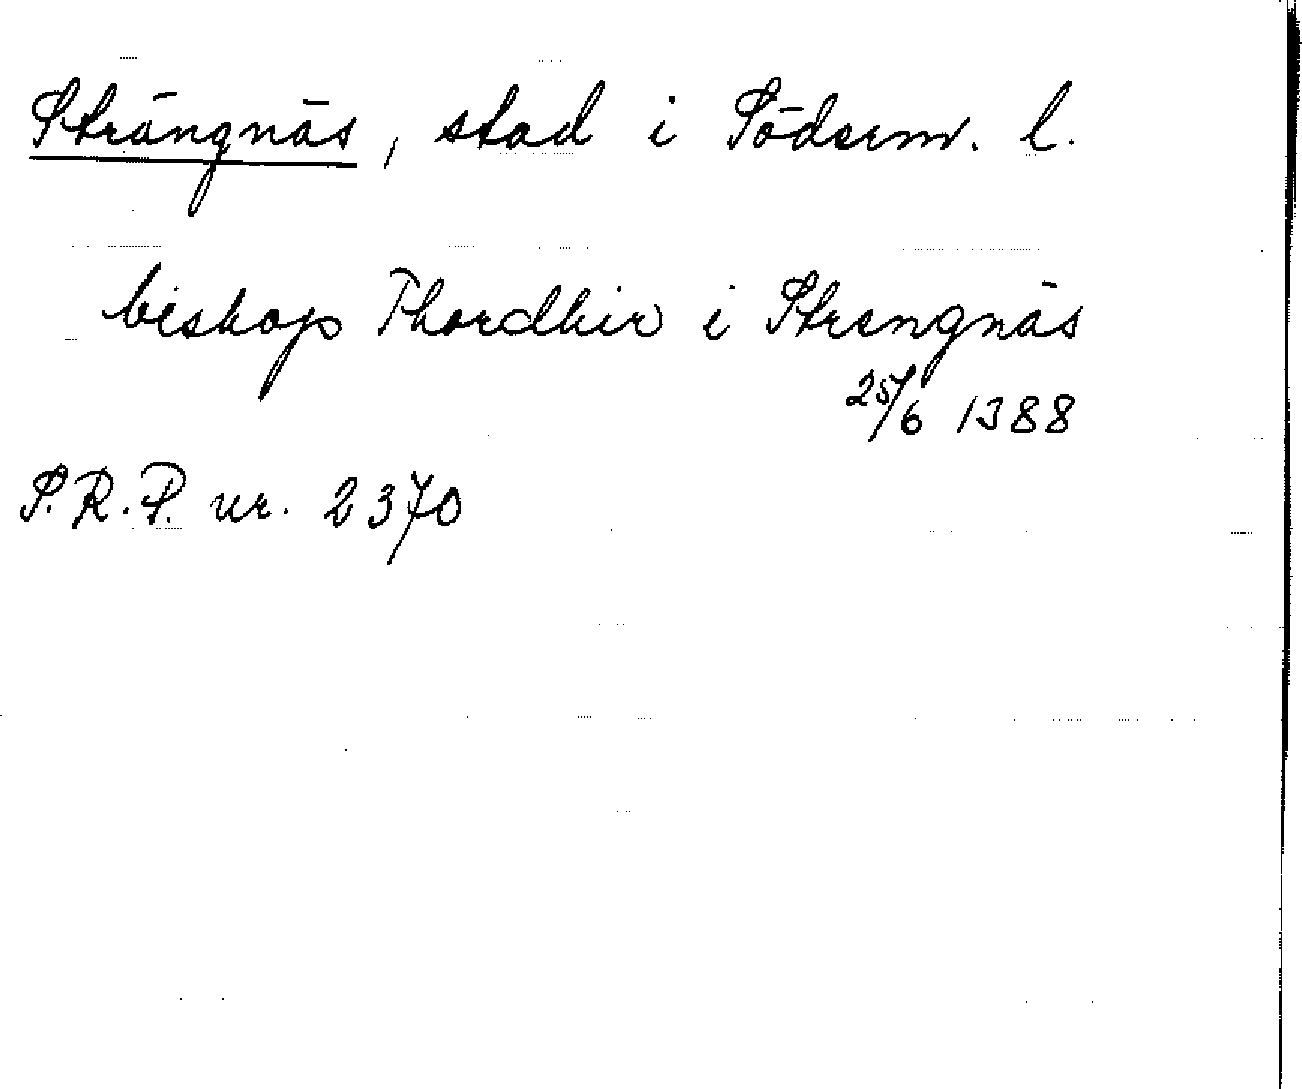 Strängnäs, stad i Söderm. l.
biskop Thordhir i Strengnäs
25/6 1388
S.R.P. nr. 2370